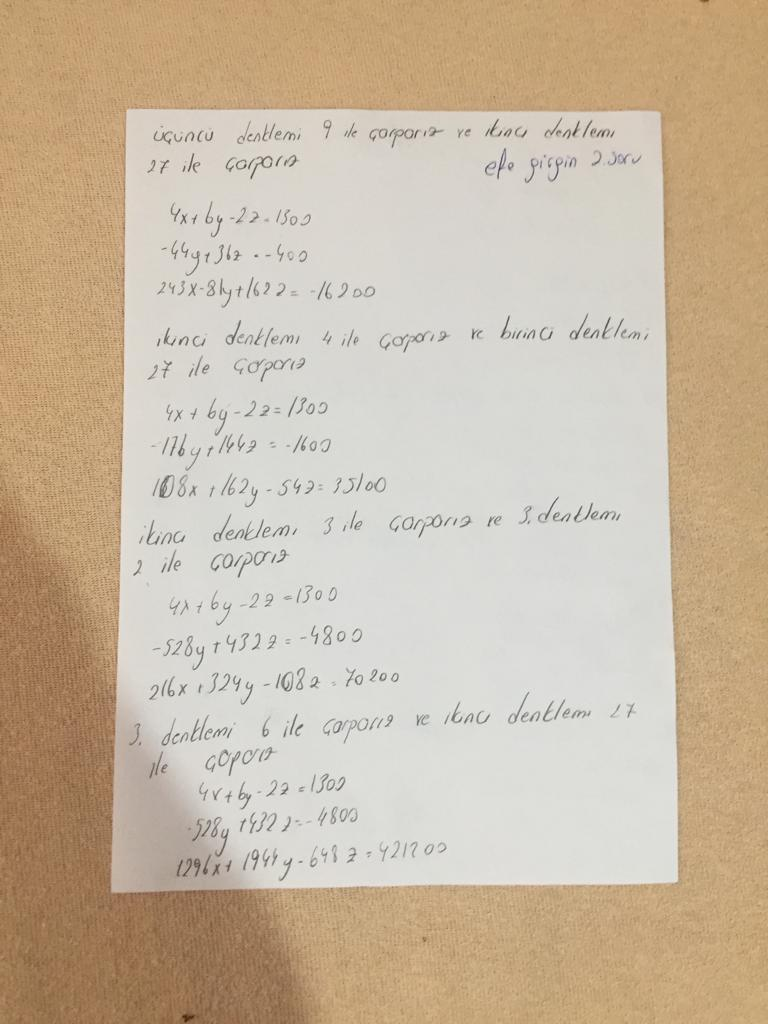 üçüncü denklemi 9 ile çarparız ve ikinci denklemi
27 ile çarparız
efe girgin 2.soru
4x+6y-2z=1300
-44y+36z=-400
243x-81y+162z=-16200
ikinci denklemi 4 ile çarparız ve birinci denklemi
27 ile çarparız
4x+6y-2z=1300
-176y+144z=-1600
108x+162y-54z=35100
ikinci denklemi 3 ile çarparız ve 3.denklemi
2 ile çarparız
4x+6y-2z=1300
-528y+432z=-4800
216x+324y-108z=70200
3. denklemi 6 ile çarparız ve ikinci denklemi 27
ile çarparız
4x+6y-2z=1300
-528y+432z=-4800
1296x+1944y-648z=421200